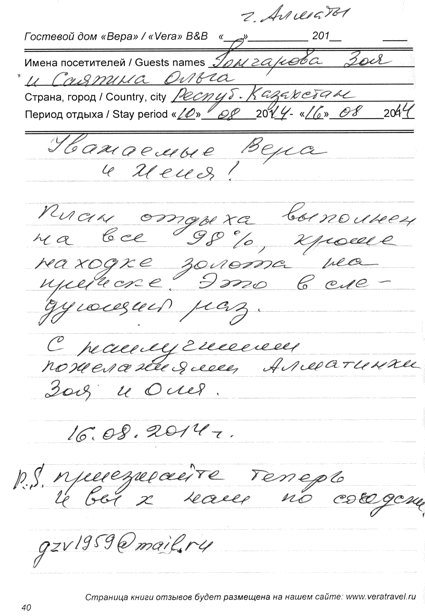 г. Алматы
Гостевой дом «Вера» / «Vera» B&B «___»____________ 201__
Имена посетителей / Guests names Гончарова Зоя
и Саяпина Ольга
Страна, город / Country, city Респуб. Казахстан
Период отдыха / Stay period «10» 08 2014 - «16» 08 2014
Уважаемые Вера
и Женя!
План отдыха выполнен
на все 98%, кроме
находке золота на
прииске. Это в сле-
дующий раз.
С наилучшими
пожеланиями Алматинки
Зоя и Оля.
16.08.2014г.
P.S. приезжайте теперь
и вы к нам по соседски.
gzv1959@mail.ru
Страница книги отзывов будет размещена на нашем сайте: www.veratravel.ru
40